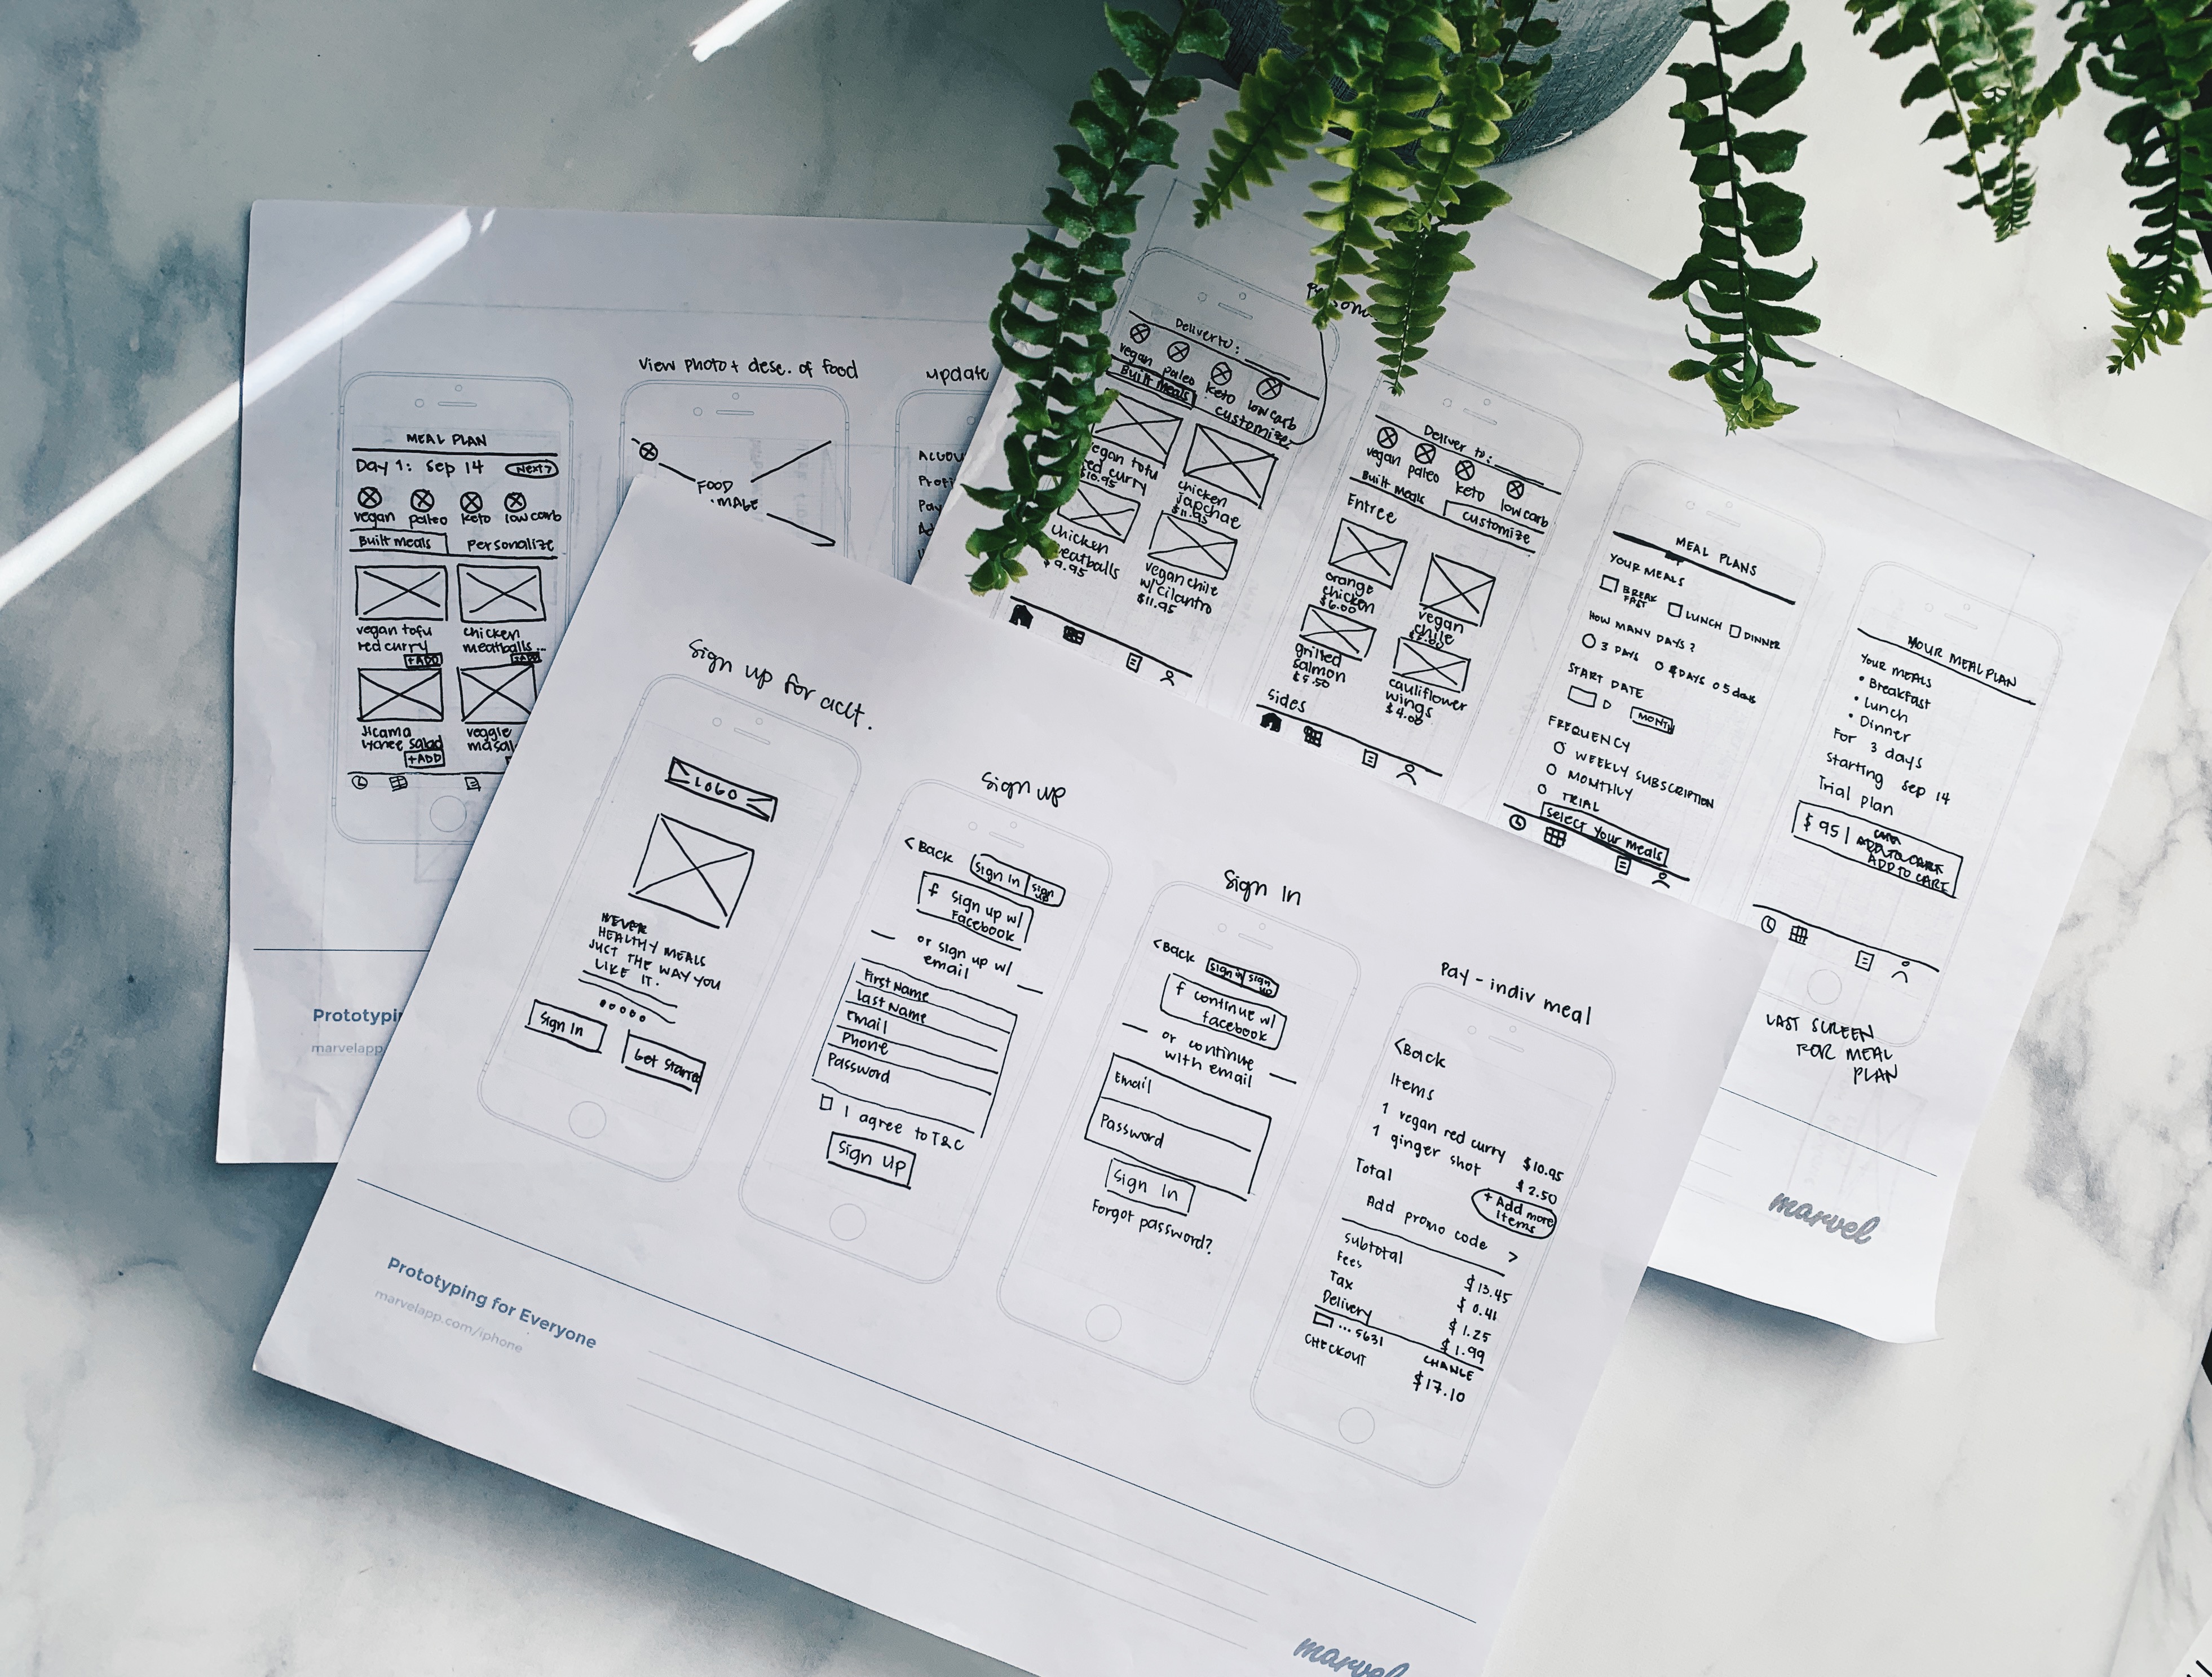 View photo + desc. of food
update
MEAL PLAN
Day 1: Sep 14
Next >
vegan
paleo
keto
low carb
Built meals
Personalize
vegan tofu
red curry
+ADD
chicken
meatballs...
+ADD
Jicama
lychee salad
+ADD
veggie
masal
FOOD
IMAGE
Prototypin
marvelapp
Deliver to:
vegan
paleo
keto
low carb
Built Meals
customize
egan tofu
ed curry
$10.95
chicken
Japchae
$11.95
chicken
meatballs
$9.95
vegan chile
w/ cilantro
$11.95
Deliver to:
vegan
paleo
keto
low carb
Built Meals
customize
Entree
orange
chicken
$6.00
vegan
chile
grilled
salmon
$5.50
cauliflower
wings
$4.00
Sides
MEAL PLANS
YOUR MEALS
BREAK
FAST
LUNCH
DINNER
HOW MANY DAYS?
3 DAYS
DAYS
5 days
START DATE
D
MONTH
FREQUENCY
WEEKLY SUBSCRIPTION
MONTHLY
TRIAL
Select your meals
YOUR MEAL PLAN
Your MEALS
• Breakfast
• Lunch
• Dinner
For 3 days
Starting Sep 14
Trial plan
$95 |
ADD TO CART
LAST SCREEN
FOR MEAL
PLAN
marvel
Sign up for acct.
LOGO
HEALTHY MEALS
JUST THE WAY YOU
LIKE IT.
Sign In
Get Started
Sign up
< Back
Sign in
sign
up
f Sign up w/
Facebook
or sign up w/
email
First Name
Last Name
Email
Phone
Password
I agree to T&C
Sign Up
Sign In
< Back
Sign in
sign
up
f continue w/
facebook
or continue
with email
Email
Password
Sign In
Forgot password?
Pay - indiv meal
< Back
Items
1 vegan red curry $10.95
1 ginger shot $2.50
Total
+ Add more
items
Add promo code >
Subtotal $13.45
Fees $0.41
Tax $1.25
Delivery $1.99
... 5631 CHANGE
CHECKOUT $17.10
Prototyping for Everyone
marvelapp.com/iphone
marvel